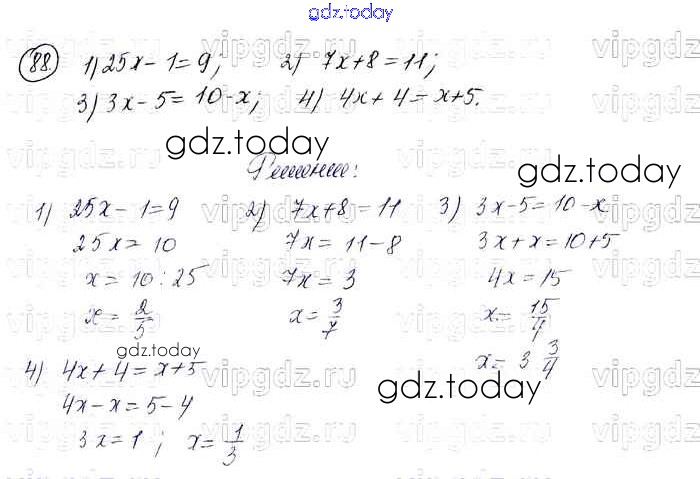 gdz.today
88. 1) 25x - 1 = 9; 2) 7x + 8 = 11;
3) 3x - 5 = 10 - x; 4) 4x + 4 = x + 5.
gdz.today
gdz.today
Решение:
1) 25x - 1 = 9 2) 7x + 8 = 11 3) 3x - 5 = 10 - x
25x = 10 7x = 11 - 8 3x + x = 10 + 5
x = 10 : 25 7x = 3 4x = 15
x = 2/5 x = 3/7 x = 15/4
x = 3 3/4
gdz.today
4) 4x + 4 = x + 5
gdz.today
4x - x = 5 - 4
3x = 1; x = 1/3
vipgdz.ru